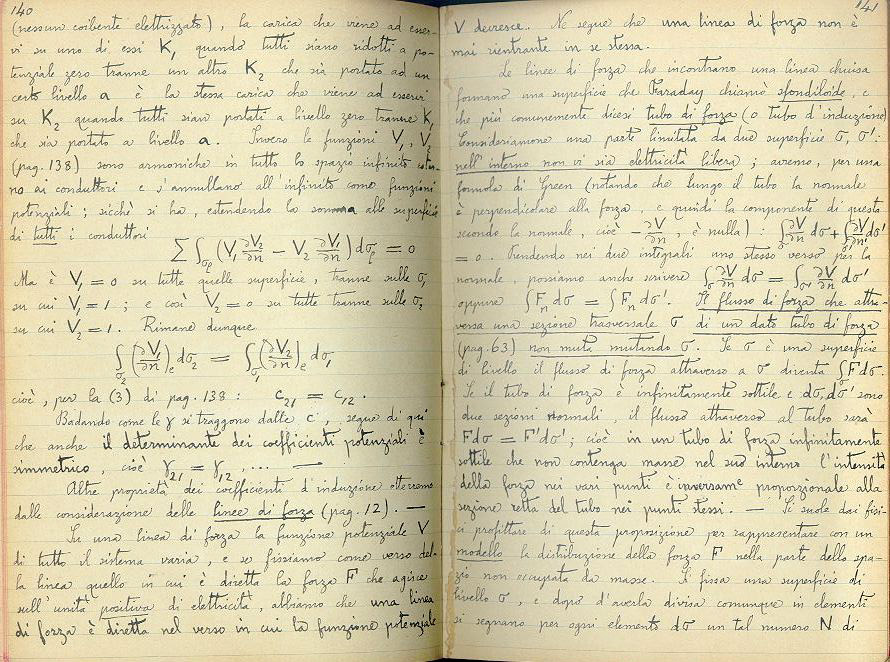 140
(nessun coibente elettrizzato), la carica che viene ad esser-
vi su uno di essi K₁ quando tutti siano ridotti a po-
tenziale zero tranne un altro K₂ che sia portato ad un
certo livello a è la stessa carica che viene ad esservi
su K₂ quando tutti sian portati a livello zero tranne K₁
che sia portato a livello a. Invero le funzioni V₁, V₂
(pag. 138) sono armoniche in tutto lo spazio infinito ester-
no ai conduttori e s'annullano all'infinito come funzioni
potenziali; sicchè si ha, estendendo la somma alle superficie
di tutti i conduttori
∑ ∫σρ (V₁ ∂V₂/∂n − V₂ ∂V₁/∂n) dσρ = 0
Ma è V₁ = 0 su tutte quelle superficie, tranne sulle σ₁
su cui V₁ = 1; e così V₂ = 0 su tutte tranne sulle σ₂
su cui V₂ = 1. Rimane dunque
∫σ₂ (∂V₁/∂n)e dσ₂ = ∫σ₁ (∂V₂/∂n)e dσ₁
cioè, per la (3) di pag. 138: c₂₁ = c₁₂.
Badando come le γ si traggono dalle c, segue di qui
che anche il determinante dei coefficienti potenziali è
simmetrico, cioè γ₂₁ = γ₁₂, .... —
Altre proprietà dei coefficienti d'induzione otterremo
dalle considerazione delle linee di forza (pag. 12). —
Su una linea di forza la funzione potenziale V
di tutto il sistema varia, e se fissiamo come verso del-
la linea quello in cui è diretta la forza F che agisce
sull'unità positiva di elettricità, abbiamo che una linea
di forza è diretta nel verso in cui la funzione potenziale
141
V decresce. Ne segue che una linea di forza non è
mai rientrante in se stessa.
Le linee di forza che incontrano una linea chiusa
formano una superficie che Faraday chiamò sfondiloide, e
che più comunemente dicesi tubo di forza (o tubo d'induzione)
Consideriamone una parte limitata da due superficie σ, σ':
nell'interno non vi sia elettricità libera; avremo, per una
formola di Green (notando che lungo il tubo la normale
è perpendicolare alla forza, e quindi la componente di questa
secondo la normale, cioè −∂V/∂n, è nulla): ∫σ ∂V/∂n dσ + ∫σ' ∂V/∂n' dσ'
= 0. Prendendo nei due integrali uno stesso verso per la
normale, possiamo anche scrivere ∫σ ∂V/∂n dσ = ∫σ' ∂V/∂n dσ'
oppure ∫Fₙ dσ = ∫Fₙ dσ'. Il flusso di forza che attra-
versa una sezione trasversale σ di un dato tubo di forza
(pag. 63) non muta mutando σ. Se σ è una superficie
di livello il flusso di forza attraverso a σ diventa ∫σ F dσ.
Se il tubo di forza è infinitamente sottile e dσ, dσ' sono
due sezioni normali, il flusso attraverso al tubo sarà
F dσ = F' dσ'; cioè in un tubo di forza infinitamente
sottile che non contenga masse nel suo interno l'intensità
della forza nei vari punti è inversamᵉ proporzionale alla
sezione retta del tubo nei punti stessi. — Si suole dai fisi-
ci profittare di questa proposizione per rappresentare con un
modello la distribuzione della forza F nella parte dello spa-
zio non occupata da masse. Si fissa una superficie di
livello σ, e dopo d'averla divisa comunque in elementi
si segnano per ogni elemento dσ un tal numero N di